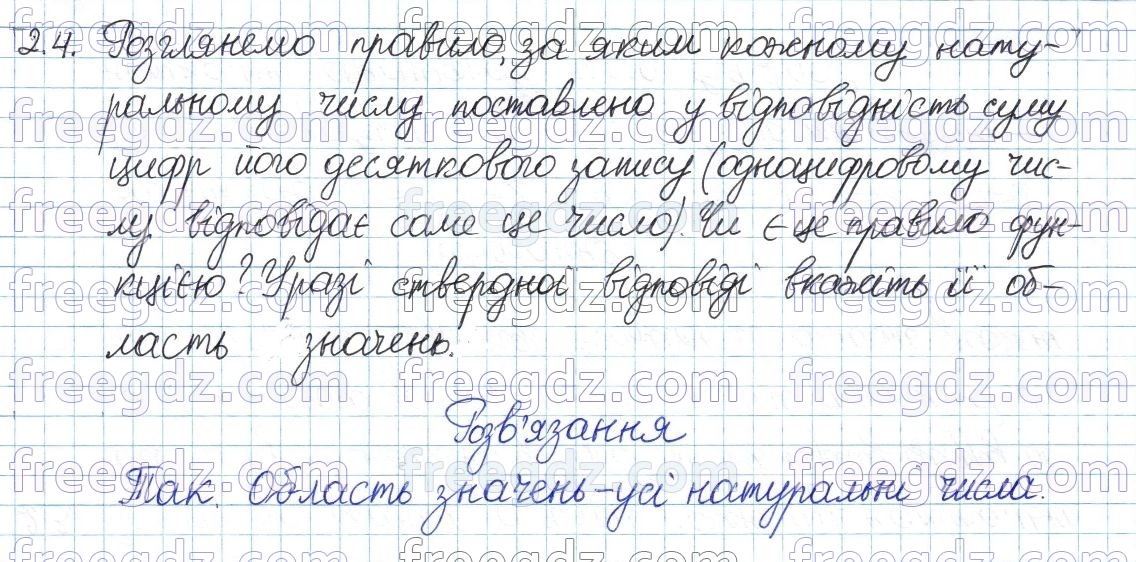 2.4. Розглянемо правило, за яким кожному нату-
ральному числу поставлено у відповідність суму
цифр його десяткового запису (одноцифровому чис-
лу відповідає саме це число). Чи є це правило фун-
кцією? У разі ствердної відповіді вкажіть її об-
ласть значень.
Розв'язання
Так. Область значень - усі натуральні числа.
freegdz.com